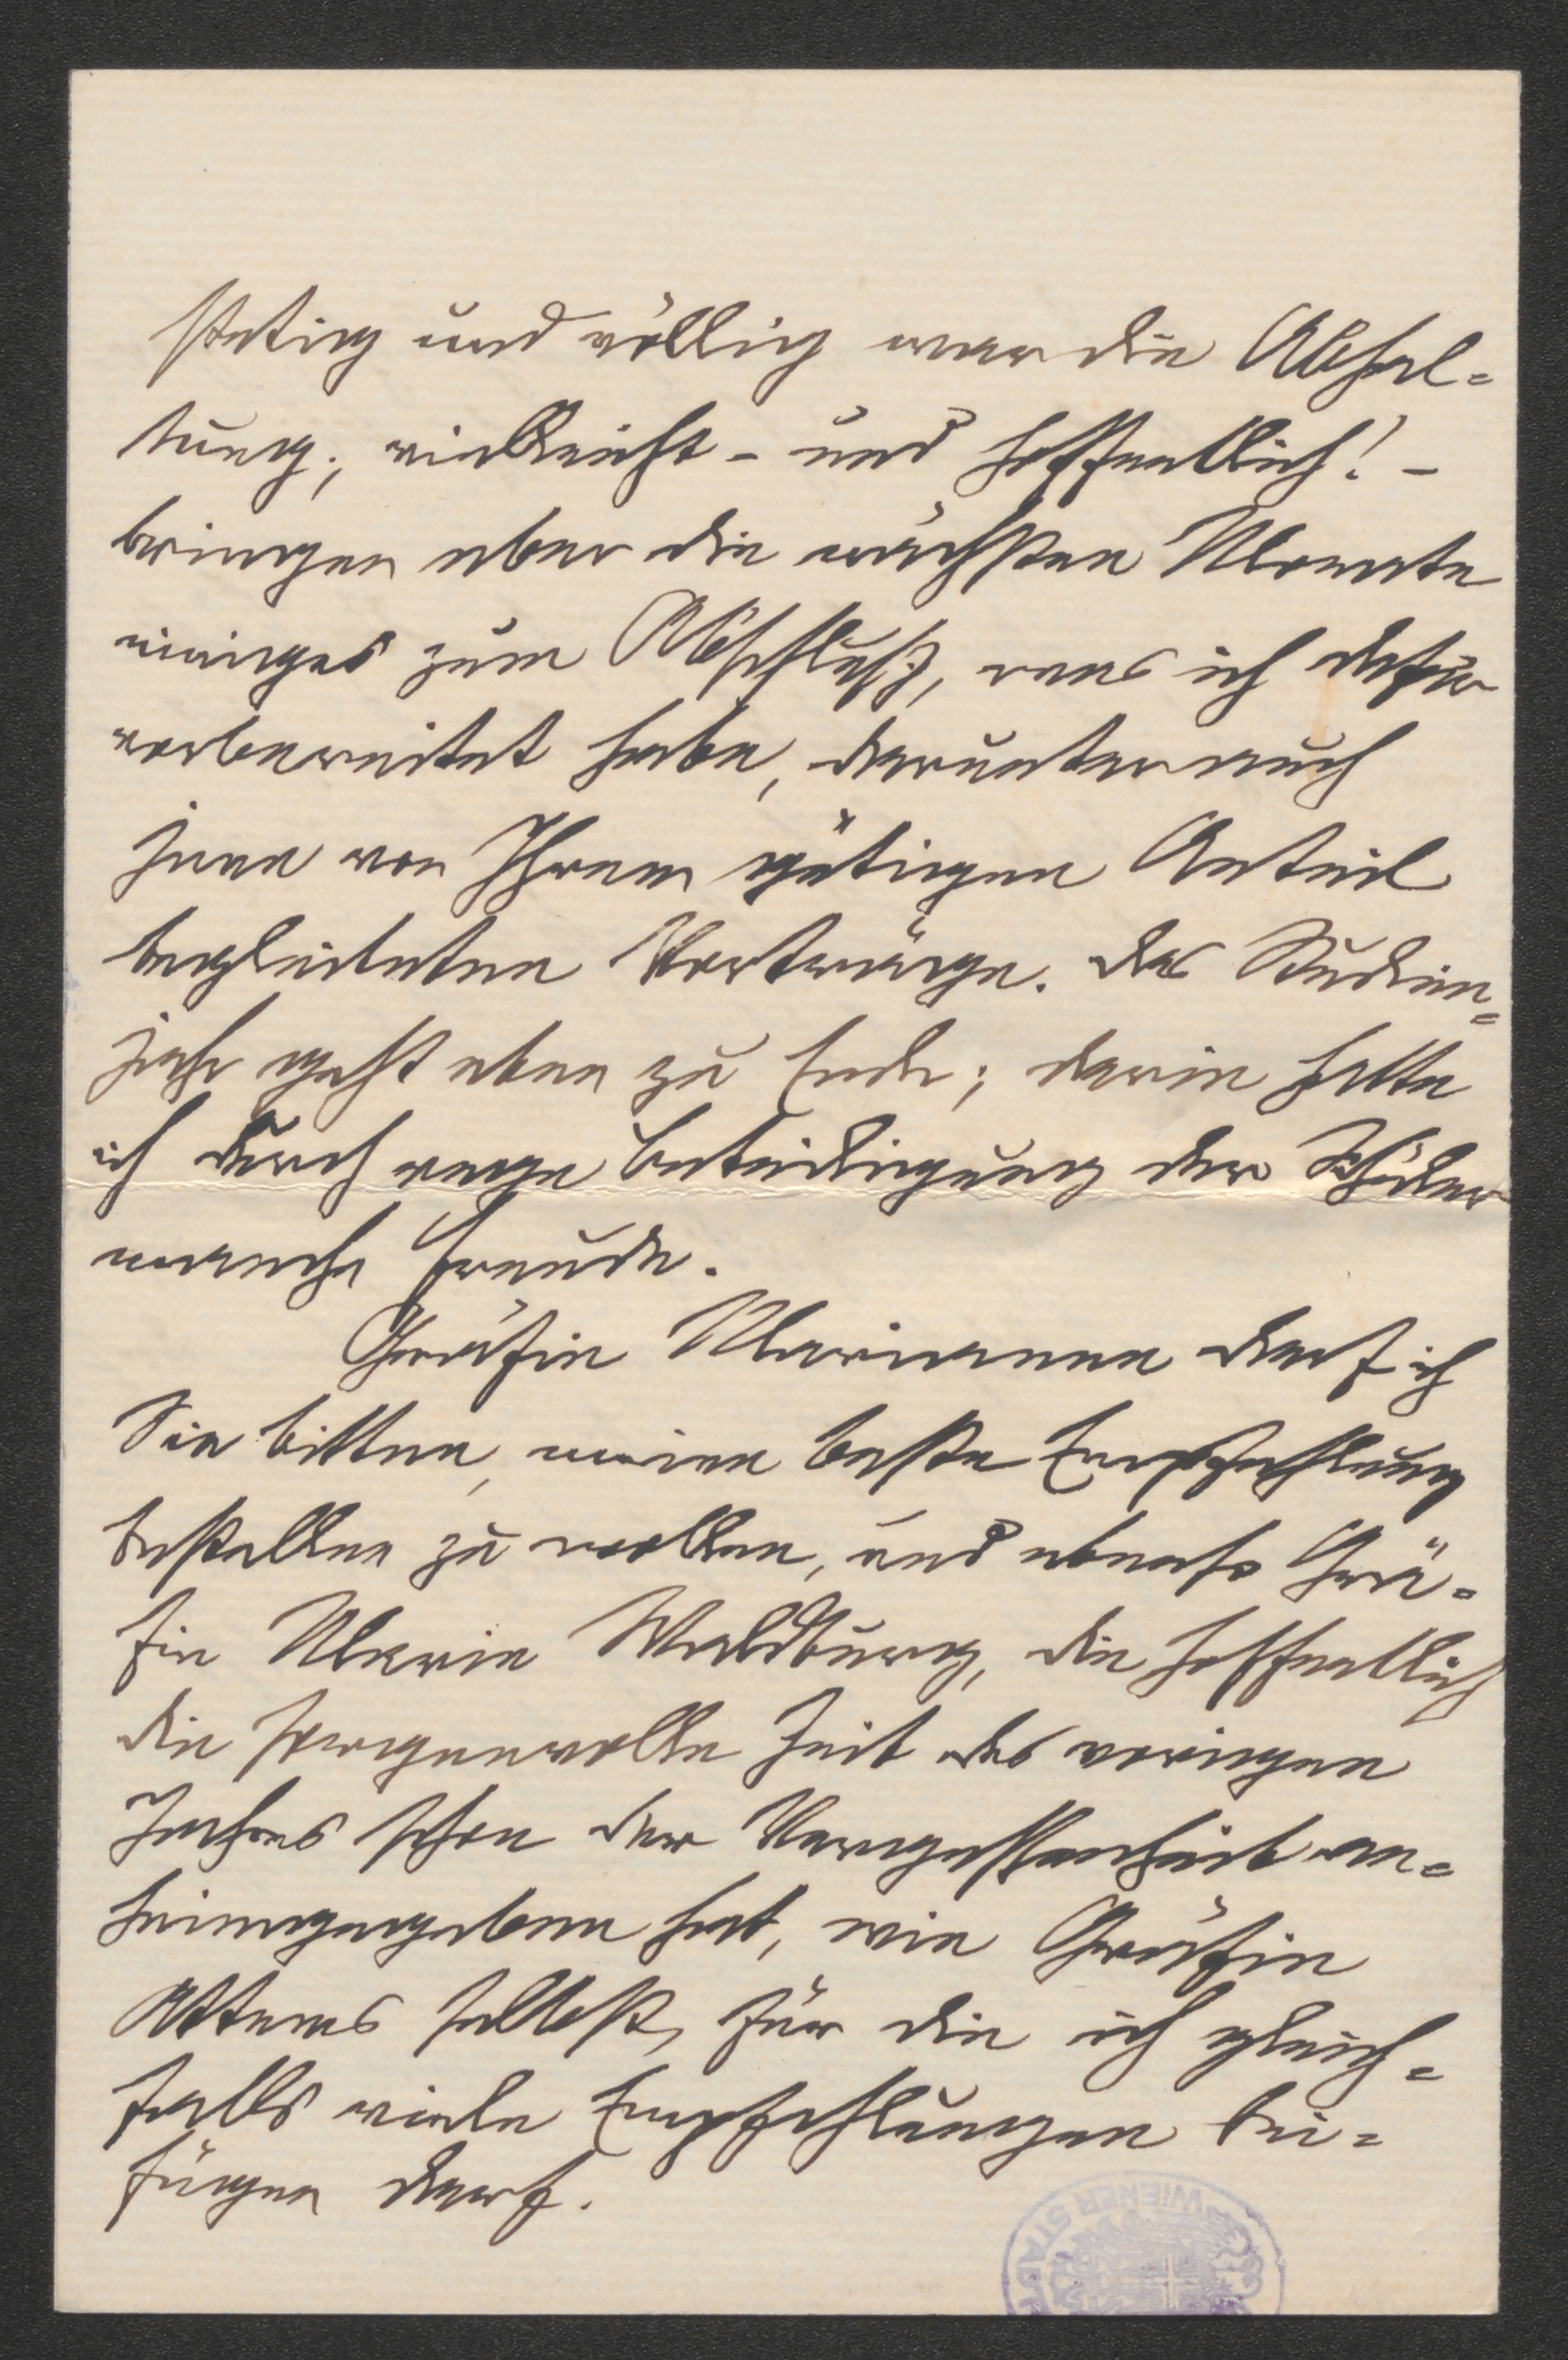 stetig und völlig war die Abhal=
tung; vielleicht - und hoffentlich! -
bringen aber die nächsten Monate
einiges zum Abschluß, was ich dafür
vorbereitet habe, darunter auch
jene von Ihrem gütigen Anteil
begleiteten Vorträge. Das Studien=
jahr geht eben zu Ende; darin hatte
ich durch rege Beteiligung der Schüler
manche Freude.
Gräfin Marianne darf ich
Sie bitten, meine beste Empfehlung
bestellen zu wollen, und ebenso Grä=
fin Marie Waldburg, die hoffentlich
die sorgenvolle Zeit des vorigen
Jahres schon der Vergessenheit an=
heimgegeben hat, wie Gräfin
Attems selbst, für die ich gleich=
falls viele Empfehlungen bei=
fügen darf.
WIENER STADT